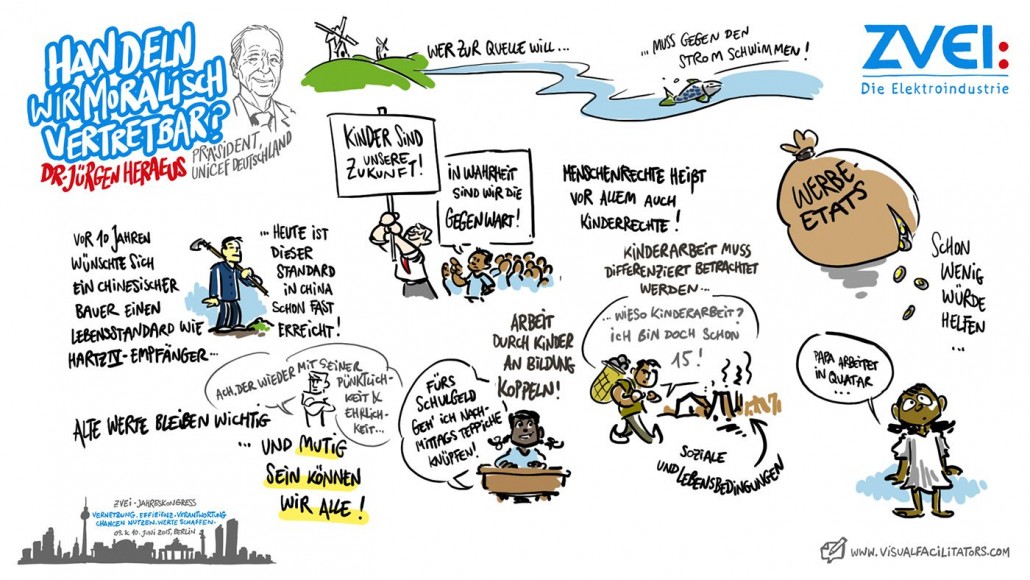 HANDELN
WIR MORALISCH
VERTRETBAR?
DR. JÜRGEN HERAEUS
PRÄSIDENT,
UNICEF DEUTSCHLAND
WER ZUR QUELLE WILL...
...MUSS GEGEN DEN
STROM SCHWIMMEN!
ZVEI:
Die Elektroindustrie
KINDER SIND
UNSERE
ZUKUNFT!
IN WAHRHEIT
SIND WIR DIE
GEGENWART!
MENSCHENRECHTE HEIßT
VOR ALLEM AUCH
KINDERRECHTE!
WERBE-
ETATS
SCHON
WENIG
WÜRDE
HELFEN
...
VOR 10 JAHREN
WÜNSCHTE SICH
EIN CHINESISCHER
BAUER EINEN
LEBENSSTANDARD WIE
HARTZ IV-EMPFÄNGER...
...HEUTE IST
DIESER
STANDARD
IN CHINA
SCHON FAST
ERREICHT!
KINDERARBEIT MUSS
DIFFERENZIERT BETRACHTET
WERDEN...
...WIESO KINDERARBEIT?
ICH BIN DOCH SCHON
15!
SOZIALE
UND LEBENSBEDINGUNGEN
ARBEIT
DURCH KINDER
AN BILDUNG
KOPPELN!
FÜRS
SCHULGELD
GEH' ICH NACH-
MITTAGS TEPPICHE
KNÜPFEN!
PAPA ARBEITET
IN QUATAR...
ACH, DER WIEDER MIT SEINER
PÜNKTLICH-
KEIT &
EHRLICH-
KEIT...
ALTE WERTE BLEIBEN WICHTIG
...UND MUTIG
SEIN KÖNNEN
WIR ALLE!
ZVEI-JAHRESKONGRESS
VERNETZUNG. EFFIZIENZ. VERANTWORTUNG
CHANCEN NUTZEN. WERTE SCHAFFEN.
09. & 10. JUNI 2015, BERLIN
WWW.VISUALFACILITATORS.COM